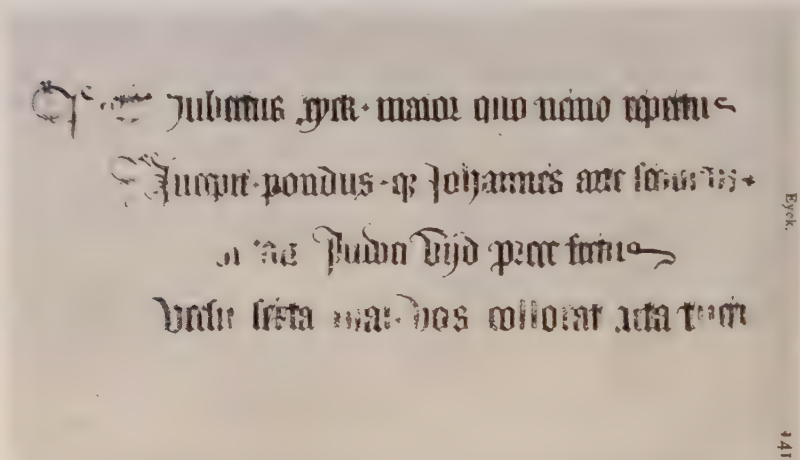 Hubertus eyck · maior quo nemo repertus
Incepit · pondus · qz Johannes arte secundus
Judoci Vijd prece fretus
Versu sexta mai · vos collocat acta tueri
Eyck.